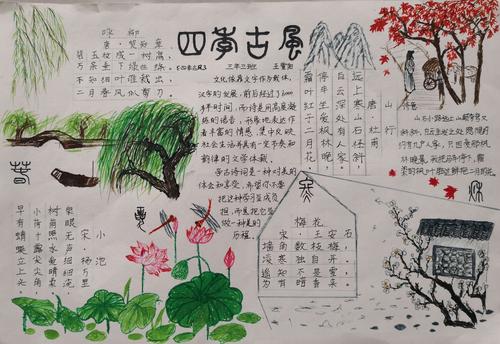 四季古风
三年三班
咏柳
唐·贺知章
碧玉妆成一树高,
万条垂下绿丝绦。
不知细叶谁裁出,
二月春风似剪刀
文化依靠文字作为载体,
汉字的发展,前后经过了
年时间,而诗是用高度凝
练的语言,形象地表达作
者丰富的情感,集中反映
社会生活并具有一定节奏和
韵律的文学体裁。
学古诗词是一种对美的
体会和享受,希望你不要
把这种学习当成负
担,而是把它当
做一种美的
历程。
山行
唐·杜牧
远上寒山石径斜,
白云深处有人家。
停车坐爱枫林晚,
霜叶红于二月花。
山石小路远上山巅弯又
斜斜,白云生出之处隐隐约
约有几户人家,只因爱那枫
林晚景,我把马都停下,霜
染的枫叶胜过鲜艳二月的
春
夏
秋
冬
小池
宋·杨万里
泉眼无声惜细流,
树阴照水爱晴柔。
小荷才露尖尖角,
早有蜻蜓立上头。
梅花
宋·王安石
墙角数枝梅,
凌寒独自开。
遥知不是雪,
为有暗香来。